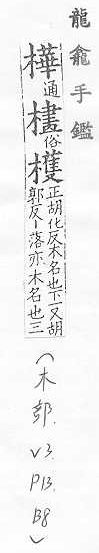 龍龕手鑑
樺通俗檴正胡化反木名也下一又胡
郭反丨落亦木名也三
(木部. V3. P13. B8)